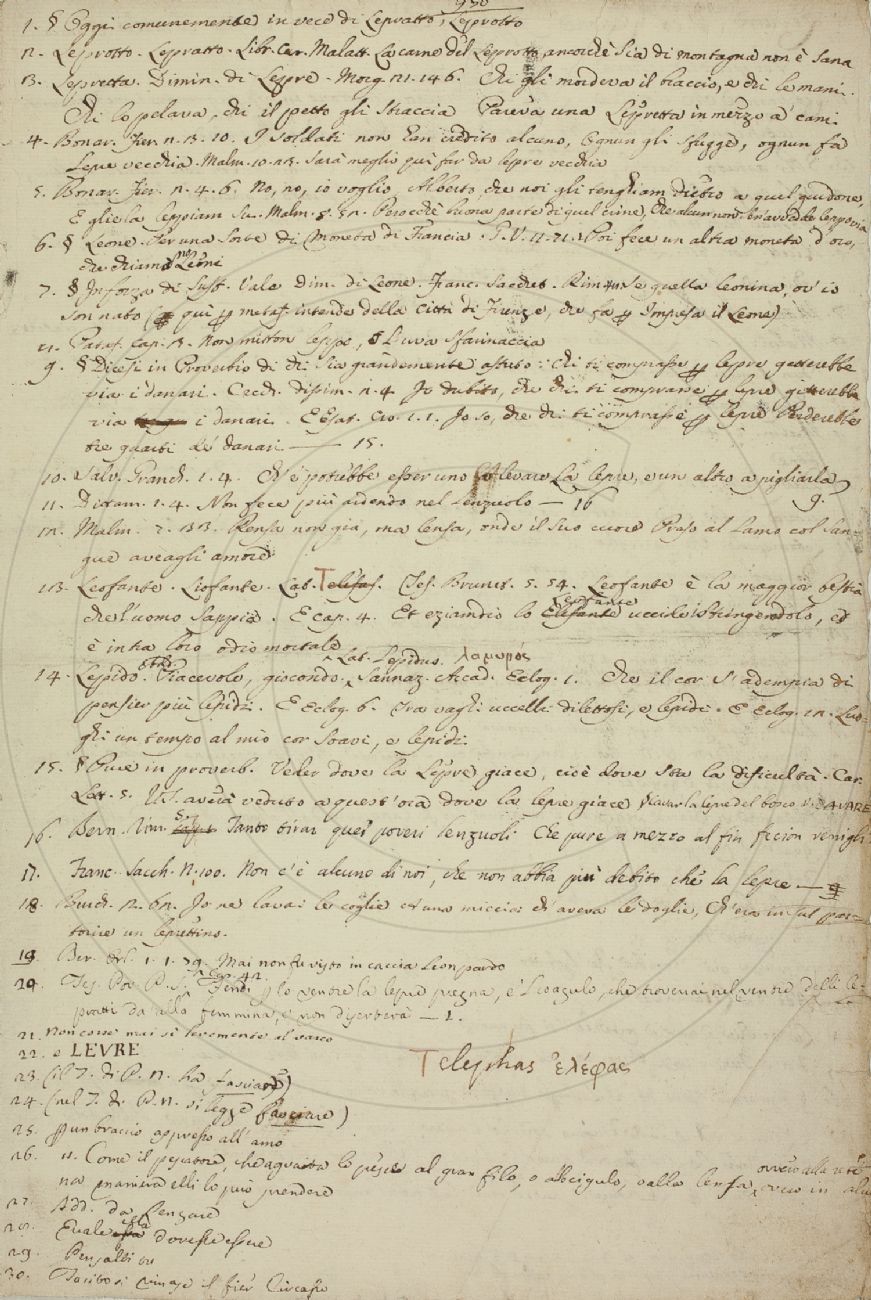 930
1. § Oggi comunemente in vece di Lepratto, Leprotto
2. Leprotto. Lepratto. Libr. Cur. Malatt. La carne del Leprotto ancorchè sia di montagna non è sana
3. Lepretta. Dimin. di Lepre. Morg. 21. 146. Chi gli mordeva il braccio, e chi le mani.
Chi lo pelava, chi il petto gli straccia Pareva una Lepretta in mezzo a' cani.
4. Bonar. Fier. 2. 3. 10. I soldati non han credito alcuno, Ognun gli sfugge, ognun fa
Lepre vecchia. Malm. 10. 23. Sarà meglio qui far da lepre vecchia
5. Bonar. Fier. 2. 4. 6. No, no, io voglio, Alberto, che noi gli tenghiam dietro a quel guidone,
E gliela leppiam su. Malm. 5. 52. Perocchè buona parte di quel crine,
6. § Leone. Per una sorte di Moneta di Francia. G. V. 11. 71. Poi fece un altra moneta d'oro,
che chiamò Leoni
7. § In forza di Sust. Vale Dim. di Leone. Franc. Sacchet. Rim. Se quella leonina, ov' io
son nato (qui p metaf. intende della Città di Firenze, che fa p Impresa il Leone)
Pataf. Cap. 3. Non miston leppe, Luva sfarinaccia
9. § Dicesi in Proverbio di chi sia grandemente astuto: chi ti comprasse p lepre getterebbe
via i danari. Cecch. dissim. 2. 4 Io dubito, che chi ti comprasse p lepre getterebbe
via i danari. E Esalt. Cro. 1. 1. Io so, che chi ti comprasse p lepre perderebbe
tre quarti de' danari — 15.
10. Salv. Granch. 1. 4. Ch'e' potrebbe esser uno levare la lepre, e un altro a pigliarla
9.
11. Dittam. 1. 4. Non fece più ardendo nel lenzuolo — 16
12. Malm. 7. Rensa non già, ma lensa, onde il suo cuore Preso al lamo col san-
gue aveagli amore
13. Leofante. Liofante. Lat. Telefas. Tes. Brunet. 5. 54. Leofante è la maggior bestia
che l'uomo sappia. E cap. 4. Et eziandio lo Elefante Leofante uccide istringendolo, ed
è intra loro odio mortale
14. Lepido. Piacevole, giocondo. Lat. Lepidus. λαμυρός Sannaz. Arcad. Eclog. 1. Che il cor s'adempia di
pensier più lepidi. E Eclog. 6. Tra vaghi uccelli dilettosi, e lepidi. E Eclog. 12. Luo-
ghi un tempo al mio cor soavi, e lepidi.
15. § Pure in proverb. Veder dove la Lepre giace, cioè dove sta la dificultà. Car.
Lett. 5. V.S. avrà veduto a quest'ora dove la lepre giace Cavar la lepre del bosco v. CAVARE
16. Bern. Rim. Tanto tirar quei poveri lenzuoli Che pure a mezzo al fin fecion venigli
17. Franc. Sacch. N. 100. Non c'è alcuno di noi, che non abbia più debito che la lepre —
18 Burch. 2. 62. Io ne lavai le coglie ad una miccia Ch'aveva le doglie, Ch'era in sul par-
torire un leprettino.
19. Ber. Orl. 1. 1. 79. Mai non fu visto in caccia Leonpardo
20. Tes. Pov. P. S. Cap. 42. Fendi p lo ventre la lepre pregna, e 'l coagulo, che troverai nel ventre delli le-
pratti da' alla femmina, e non diserterà — 1.
21. Non corre mai sì leremente al varco
22. o LEVRE
Telephas ἐλέφας
23. (il 7. di P. N. ha fasciare)
24. (nel 7. di P. N. si legge fasciare)
25. p un braccio appresso all'amo
26. Come il pescatore, che aguaita lo pesce al gran filo, o al cigulo, o alla lensa, ovvero alla rete ovver in alcu
na maniera elli lo può prendere
27. Add. da Lenzare
28. E vale dovesse essere
29. Pensalbi
30. Tosto si cinge il fier Circasso